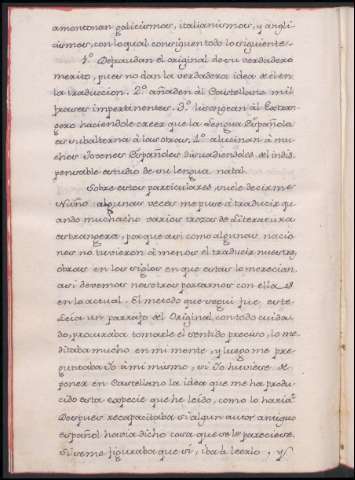 amontonan galicismos, italianismos, y angli
cismos, con lo qual consiguen todo lo siguiente.
1.º Defraudan el original de su verdadero
merito, pues no dan la verdadera idea de el en
la traduccion. 2.º añaden al Castellano mil
frases impertinentes. 3.º lisongean al Extran
gero haciendole creer que la lengua Española
es subalterna á las otras. 4.º alucinan á mu
chos Jovenes Españoles disuadiendoles del indis
pensable estudio de su lengua natal.
Sobre estos particulares suele decirme
Nuño: algunas veces me puse á traducir qu
ando muchacho varios trozos de Literatura
estrangera, porque asi como algunas nacio
nes no tuvieron á menos el traducir nuestras
obras en los siglos en que estas lo merecian
asi devemos nosotros portarnos con ellas
en lo actual. El metodo que segui fue este.
Leia un parrafo del Original con todo cuida
do, procuraba tomarle el sentido preciso, lo me
ditaba mucho en mi mente, y luego me pre
guntaba Yo á mi mismo, si Yo huviese de
poner en Castellano la idea que me ha produ
cido esta especie que he leido, como lo haria?
Despues recapacitaba si algun autor antiguo
español havia dicho cosa que se le pareciese.
Si se me figuraba que si, iba á leerlo, y